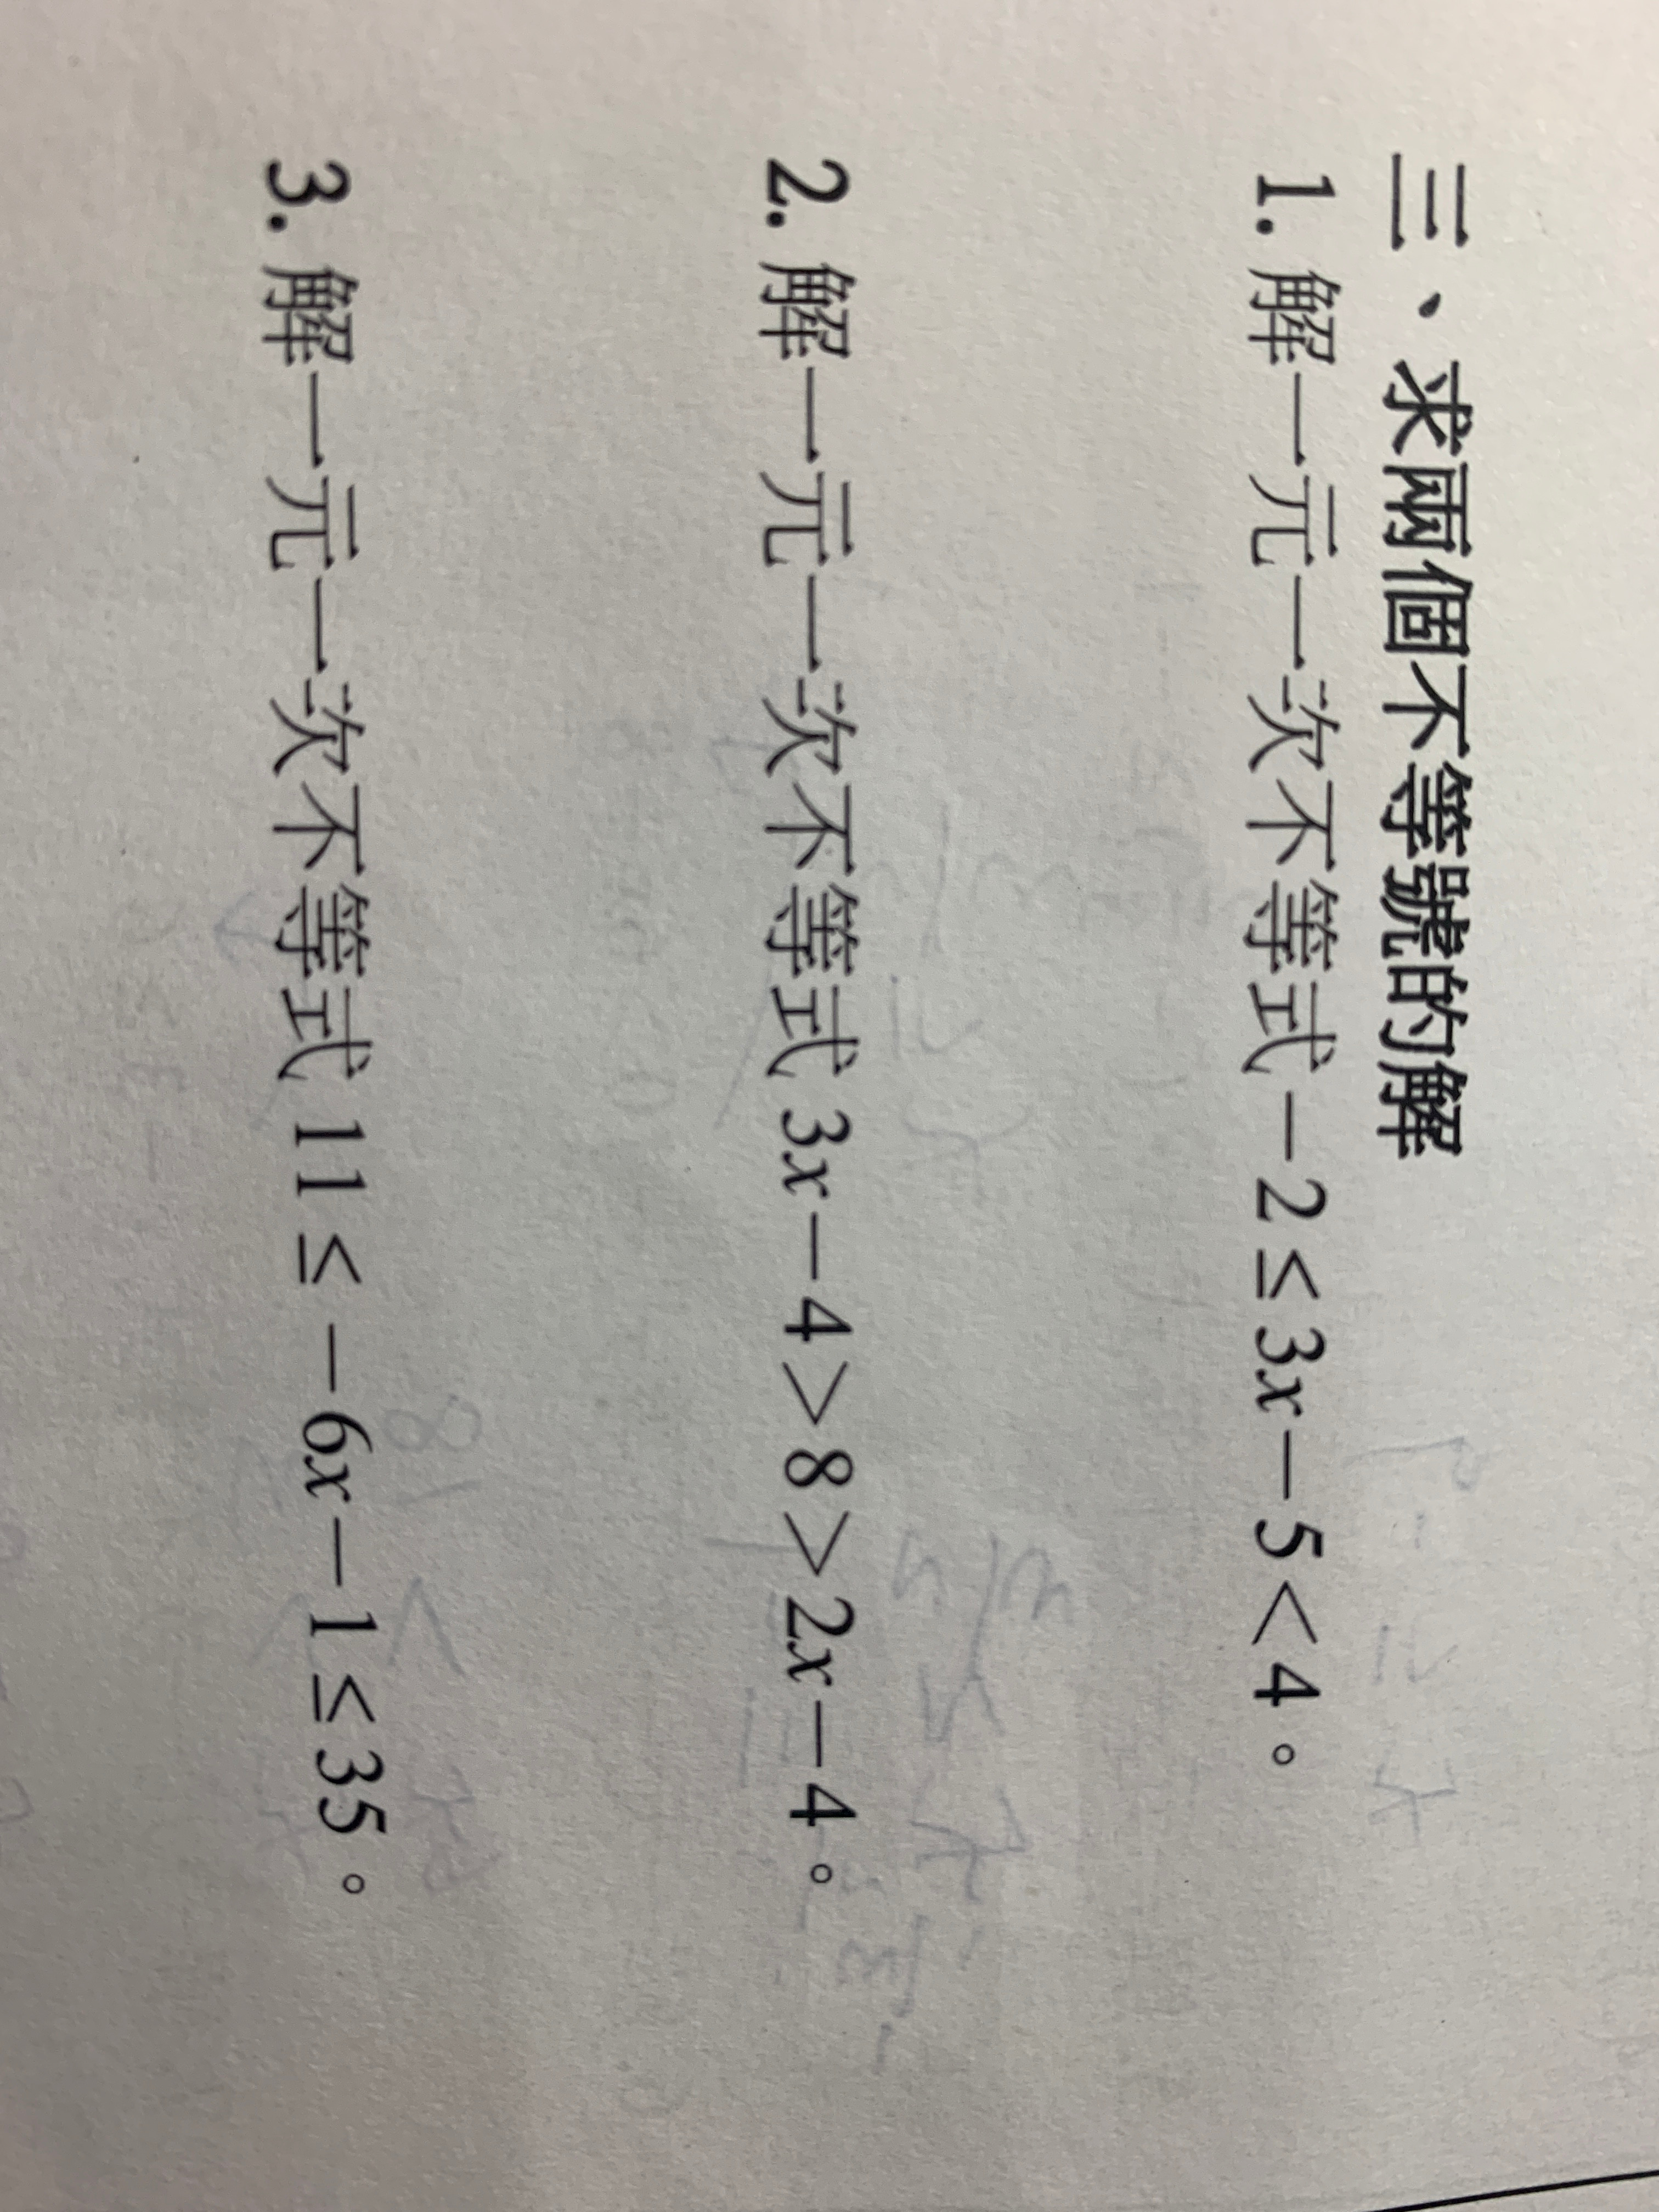 三、求兩個不等號的解
1. 解一元一次不等式 −2≤3x−5<4。
2. 解一元一次不等式 3x−4>8>2x−4。
3. 解一元一次不等式 11≤−6x−1≤35。